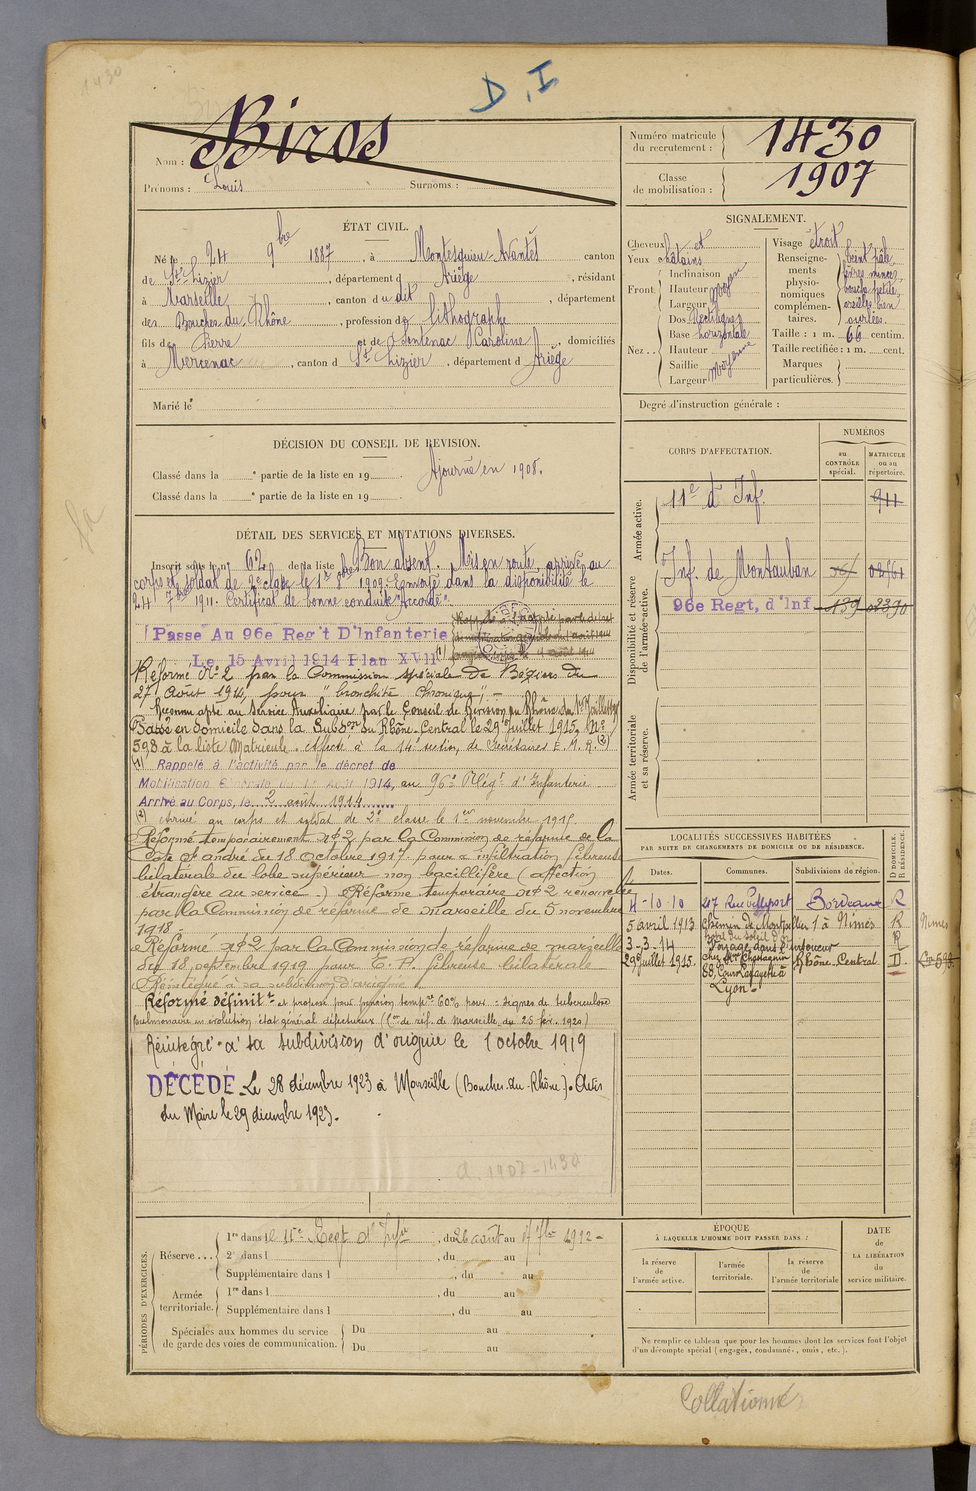 1430
D.I
Biros
Nom :
Prénoms : Louis Surnoms :
Numéro matricule du recrutement : 1430
Classe de mobilisation : 1907
ÉTAT CIVIL.
Né le 24 9bre 1887, à Montesquieu-Avantès canton
de St-Lizier, département d Ariège, résidant
à Marseille, canton du dit, département
des Bouches du Rhône, profession de lithographe
fils de Pierre et de Sentenac Caroline, domiciliés
à Mercenac, canton d St Lizier, département d Ariège
Marié le
SIGNALEMENT.
Cheveux et
Yeux châtains
Front
Inclinaison
Hauteur
Largeur
moyen
Nez
Dos Rectiligne
Base horizontale
Hauteur
Saillie
Largeur
moyenne
Visage étroit
Renseignements physionomiques complémentaires.
teint pâle,
lèvres minces,
bouche petite,
oreilles bien
ourlées.
Taille : 1 m. 66 centim.
Taille rectifiée : 1 m. cent.
Marques particulières.
Degré d'instruction générale :
DÉCISION DU CONSEIL DE REVISION.
Classé dans la e partie de la liste en 19 . Ajourné en 1908.
Classé dans la e partie de la liste en 19 .
CORPS D'AFFECTATION.
NUMÉROS
au CONTRÔLE spécial.
MATRICULE ou au répertoire.
Armée active.
11e d'Inf. 911
Disponibilité et réserve de l'armée active.
Inf. de Montauban
96e Regt, d'Inf 139 02390
Armée territoriale et sa réserve.
DÉTAIL DES SERVICES ET MUTATIONS DIVERSES.
Inscrit sous le n° 62 de la liste Bon absent. Mis en route, arrivé au
corps et soldat de 2e classe le 1er 8bre 1909. Renvoyé dans la disponibilité le
24 7bre 1911. Certificat de bonne conduite "Accordé"
Passé Au 96e Reg't D'Infanterie
Le 15 Avril 1914 Plan XVII (1)
Réformé N° 2 par la Commission spéciale de Béziers du
27 Août 1914, pour "bronchite chronique",
Reconnu apte au Service Auxiliaire par le Conseil de Révision du Rhône du
Passé en domicile dans la Subdon du Rhône-Central le 29 juillet 1915. N°
593 à la liste Matricule. Affecté à la 14e section de Secrétaires E. M. R. (2)
(1) Rappelé à l'activité par le décret de
Mobilisation Générale du 1er Août 1914, au 96e Régt d'Infanterie
Arrivé au Corps, le 2 août 1914
(2) Arrivé au corps et soldat de 2e classe le 1er novembre 1915.
Réformé temporairement n°2 par la Commission de réforme de la
Côte St André du 18 Octobre 1917 pour « infiltration fibreuse
bilatérale du lobe supérieur non bacillifère (affection
étrangère au service). Réforme temporaire n°2 renouvelée
par la Commission de réforme de Marseille du 5 novembre
1918.
Réformé n°2 par la Commission de réforme de Marseille
du 18 septembre 1919 pour T. P. fibreuse bilatérale
Réintégré à sa subdivision d'origine
Réformé définitt et proposé pour pension tempre 60% pour : signes de tuberculose
pulmonaire en évolution état général défectueux (Con de réf. de Marseille du 25 fév. 1920)
Réintégré à sa subdivision d'origine le 1 octobre 1919
DÉCÉDÉ Le 28 décembre 1923 à Marseille (Bouches-du-Rhône). Avis
du Maire le 29 décembre 1923.
a. 1907-1430
LOCALITÉS SUCCESSIVES HABITÉES
PAR SUITE DE CHANGEMENTS DE DOMICILE OU DE RÉSIDENCE.
Dates. Communes. Subdivisions de région. D DOMICILE. R RÉSIDENCE.
4-10-10 207 Rue Bordeaux R
5 avril 1913 Chemin de Montpellier 1 à Nîmes R Nîmes
3-3-14 R
29 juillet 1915. Rhône-Central D
88, Cours Lafayette à
Lyon
PÉRIODES D'EXERCICES.
Réserve
1re dans le 11e Regt d'Infie, du 26 août au 17 7bre 1912
2e dans l , du au
Supplémentaire dans l , du au
Armée territoriale.
1re dans l , du au
Supplémentaire dans l , du au
Spéciales aux hommes du service de garde des voies de communication.
Du au
Du au
ÉPOQUE
À LAQUELLE L'HOMME DOIT PASSER DANS :
la réserve de l'armée active.
l'armée territoriale.
la réserve de l'armée territoriale
DATE de LA LIBÉRATION du service militaire.
Ne remplir ce tableau que pour les hommes dont les services font l'objet
d'un décompte spécial (engagés, condamnés, omis, etc.).
Collationné